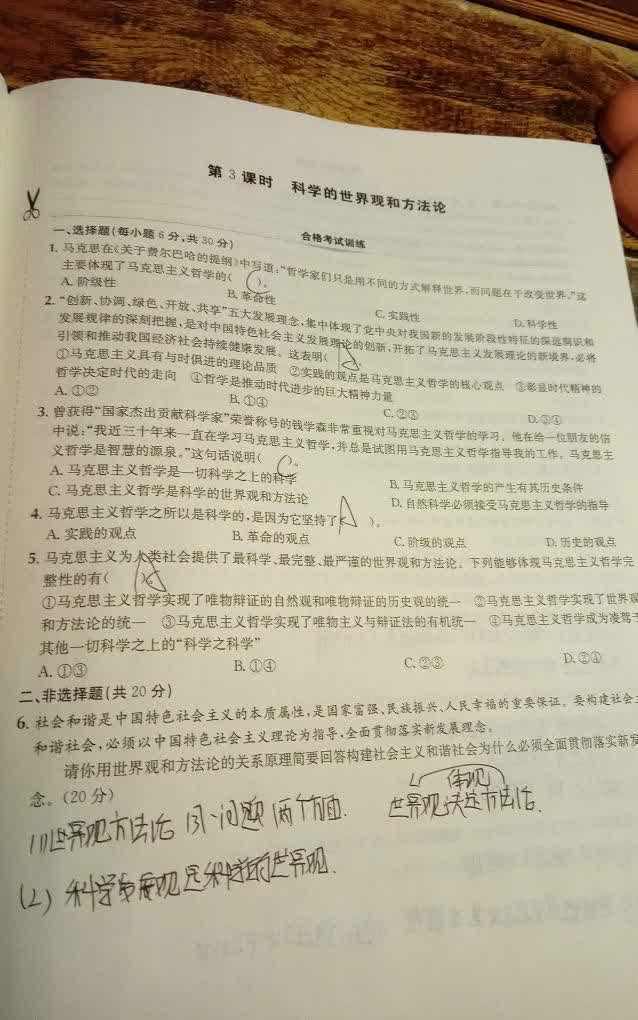 第 3 课时 科学的世界观和方法论
合格考试训练
一、选择题(每小题 6 分,共 30 分)
1. 马克思在《关于费尔巴哈的提纲》中写道:“哲学家们只是用不同的方式解释世界,而问题在于改变世界。”这
主要体现了马克思主义哲学的( C )。
A. 阶级性 B. 革命性 C. 实践性 D. 科学性
2. “创新、协调、绿色、开放、共享”五大发展理念,集中体现了党中央对我国新的发展阶段性特征的深远洞识和
发展规律的深刻把握,是对中国特色社会主义发展理论的创新,开拓了马克思主义发展理论的新境界,必将
引领和推动我国经济社会持续健康发展。这表明(
①马克思主义具有与时俱进的理论品质 ②实践的观点是马克思主义哲学的核心观点 ③彰显时代精神的
哲学决定时代的走向 ④哲学是推动时代进步的巨大精神力量
A. ①② B. ①④ C. ②③ D. ③④
3. 曾获得“国家杰出贡献科学家”荣誉称号的钱学森非常重视对马克思主义哲学的学习。他在给一位朋友的信
中说:“我近三十年来一直在学习马克思主义哲学,并总是试图用马克思主义哲学指导我的工作。马克思主
义哲学是智慧的源泉。”这句话说明( C )。
A. 马克思主义哲学是一切科学之上的科学 B. 马克思主义哲学的产生有其历史条件
C. 马克思主义哲学是科学的世界观和方法论 D. 自然科学必须接受马克思主义哲学的指导
4. 马克思主义哲学之所以是科学的,是因为它坚持了( A )。
A. 实践的观点 B. 革命的观点 C. 阶级的观点 D. 历史的观点
5. 马克思主义为人类社会提供了最科学、最完整、最严谨的世界观和方法论。下列能够体现马克思主义哲学完
整性的有( A )。
①马克思主义哲学实现了唯物辩证的自然观和唯物辩证的历史观的统一 ②马克思主义哲学实现了世界观
和方法论的统一 ③马克思主义哲学实现了唯物主义与辩证法的有机统一 ④马克思主义哲学成为凌驾于
其他一切科学之上的“科学之科学”
A. ①③ B. ①④ C. ②③ D. ②④
二、非选择题(共 20 分)
6. 社会和谐是中国特色社会主义的本质属性,是国家富强、民族振兴、人民幸福的重要保证。要构建社会主
和谐社会,必须以中国特色社会主义理论为指导,全面贯彻落实新发展理念。
请你用世界观和方法论的关系原理简要回答构建社会主义和谐社会为什么必须全面贯彻落实新发
念。(20 分)
体现
(1)世界观方法论 同一问题 两个方面. 世界观决定方法论.
(2) 科学发展观是科学的世界观.